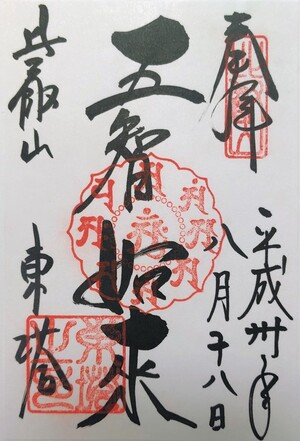 奉拝
平成卅年
八月十八日
五智如来
比叡山
東塔